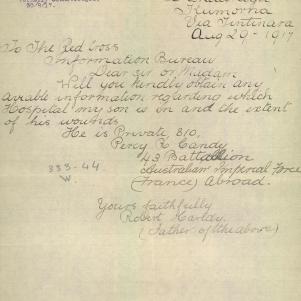 Kumorna
Via Tintinara
Aug 29 - 1917
To The Red Cross
Information Bureau
Dear Sir or Madam
Will you kindly obtain any
aviable information regarding which
Hospital my son is in and the extent
of his wounds
He is Private 810,
Percy R Candy
43 Battallion
Australian Imperial Force
(France) Abroad.
333-44
W
Yours faithfully
Robert
(Father of the above)